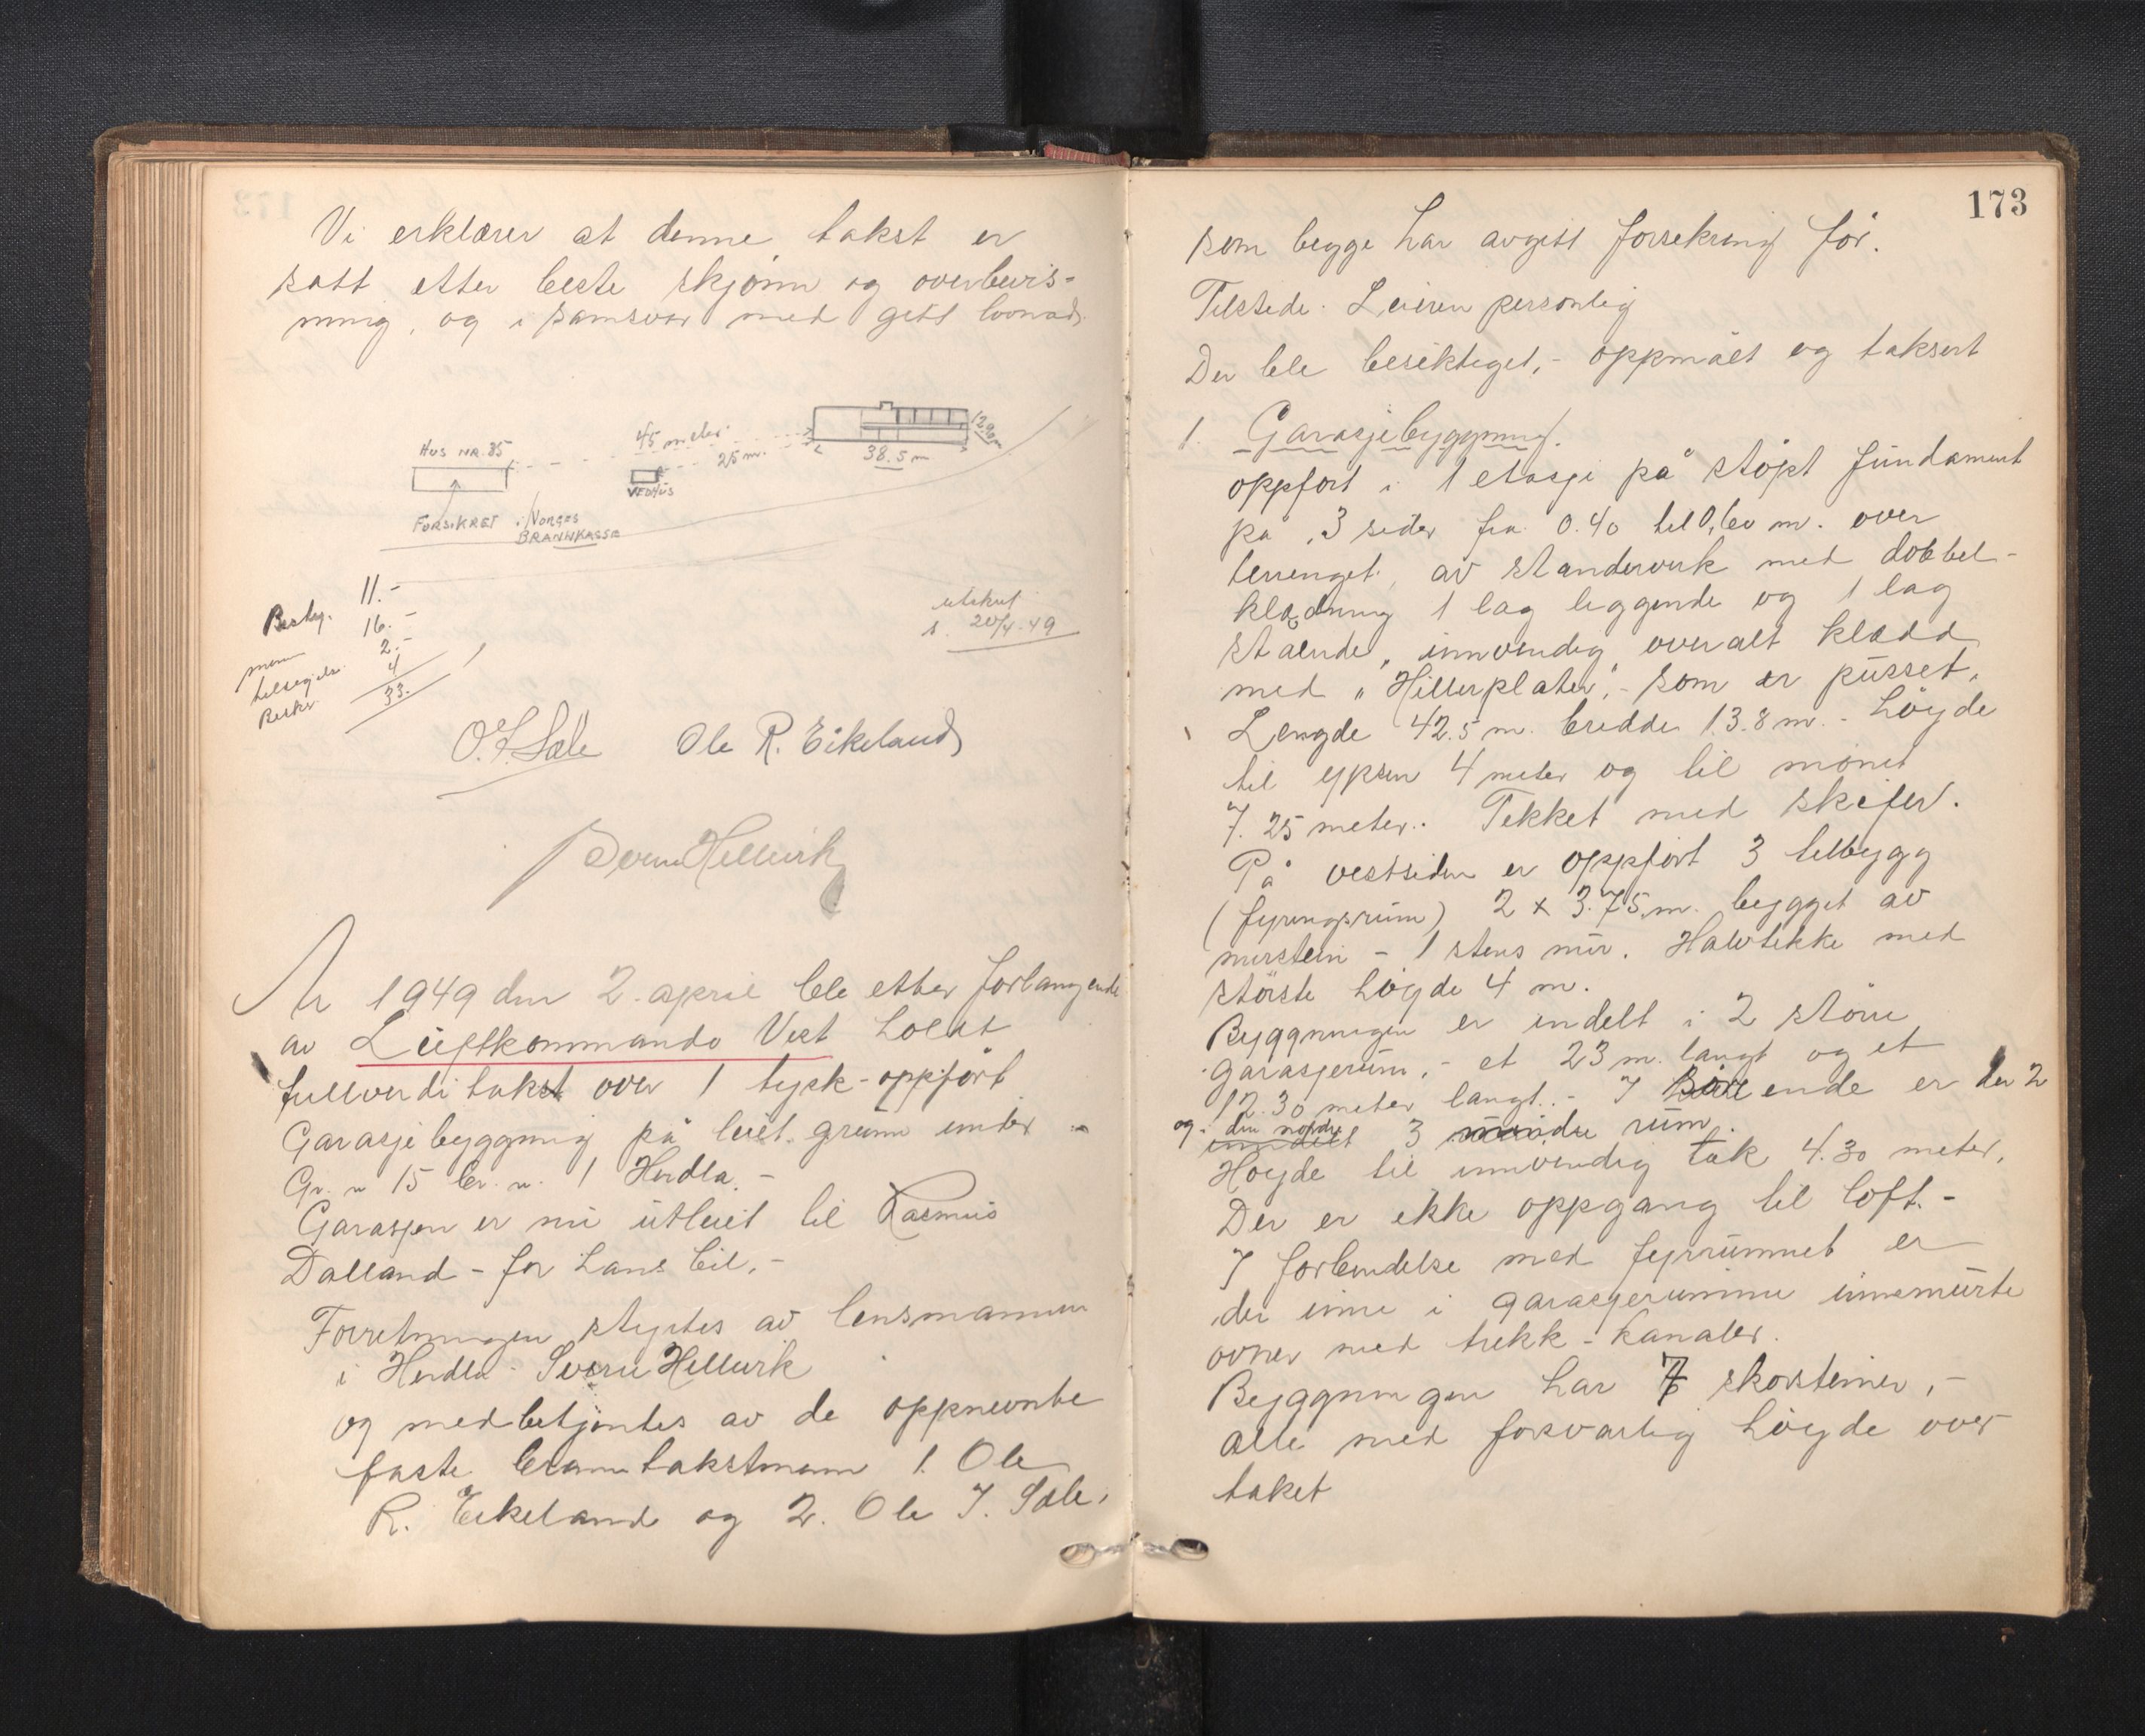 Vi erklærer at denne takst er
satt etter beste skjønn og overbevis-
ning, og i samsvar med gitt lovnad.
HUS NR. 85
45 meter
25 m.
VEDHUS
38.5 m
12.90 m
FORSIKRET i NORGES
BRANNKASSE
11.-
Besty. 16.-
menn 2.-
tilsigelse 4
Beskr. 33.
utskrt
s. 20/4-49
O. J. Sæle Ole R. Eikeland
Sverre Hellwik
År 1949 den 2. april ble etter forlangende
av Luftkommando Vest holdt
fullverdi takst over 1 tysk-oppført
Garasjebyggning på leiet grunn under
Gr. n 15 br. n. 1 Herdla.-
Garasjen er nu utleiet til Rasmus
Dalland - for hans bil.-
Forretningen styrtes av lensmannen
i Herdla Sverre Hellwik
og medbetjentes av de oppnevnte
faste branntakstmenn 1. Ole
R. Eikeland og 2. Ole J. Sæle,
173
som begge har avgitt forsikring før.
Tilstede. Leieren personlig
Der ble besiktiget,- oppmålt og taksert
1. Garasjebyggning.
oppført i 1 etasje på støpt fundament
på 3 sider fra 0.40 til 0,60 m. over
terrenget, av standerverk med dobbel-
klædning 1 lag liggende og 1 lag
stående, innvendig overalt klædd
med "Hillerplater",- som er pusset.
Lengde 42.5 m. bredde 13.8 m. - høyde
til gpsen 4 meter og til mønet
7.25 meter. Tekket med skifer.
På vestsiden er oppført 3 tilbygg
(fyringsrum) 2 x 3.75 m. bygget av
murstein - 1 stens mur. Halvtekke med
største høyde 4 m.
Byggningen er indelt i 2 større
garasjerum,- et 23 m. langt og et
12.30 meter langt.- I søre ende er der 2
og i den nordre 3 mindre rum.
Høyde til innvendig tak 4.30 meter.
Der er ikke oppgang til loft.-
I forbindelse med fyrrummet er
der inne i garasjerummene innemurte
ovner med trekk-kanaler.
Byggningen har 7 skorsteiner,-
alle med forsvarlig høyde over
taket